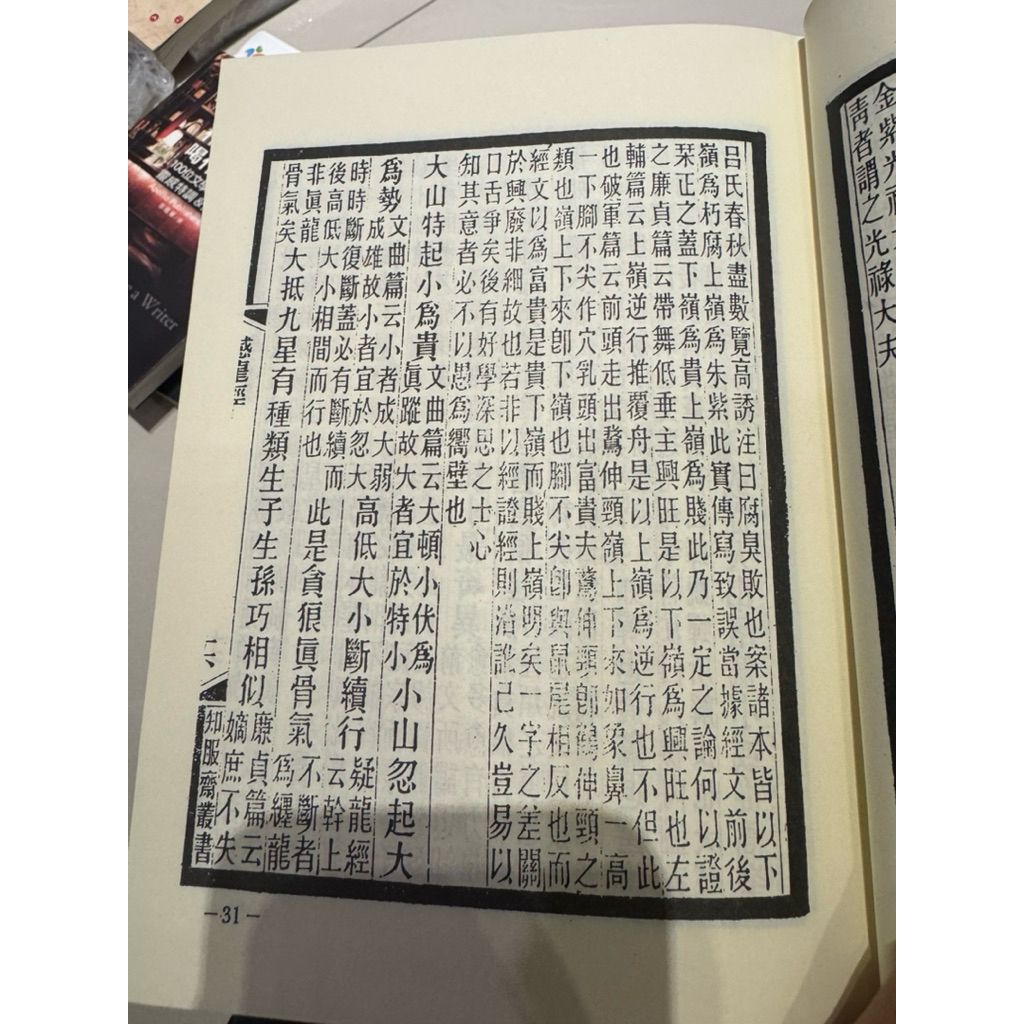 金紫光祿
青者謂之光祿大夫
呂氏春秋盡數覽高誘注曰腐臭敗也案諸本皆以下
嶺爲朽腐上嶺爲朱紫此實傳寫致誤當據經文前後
栞正之蓋下嶺爲貴上嶺爲賤此乃一定之論何以證
之廉貞篇云帶舞低垂主興旺是以下嶺爲興旺也左
輔篇云上嶺逆行推覆舟是以上嶺爲逆行也不但此
也破軍篇云前頭走出鵞伸頸嶺上下來如象鼻一高
一下腳不尖作穴乳頭出富貴夫鵞伸頸卽鶴伸頸之
類也嶺上下來卽下嶺也腳不尖卽與鼠尾相反也而
經文以爲富貴是貴下嶺而賤上嶺明矣一字之差關
於興廢非細故也若非以經證經則淆訛已久豈易以
口舌爭矣後有好學深思之士心
知其意者必不以愚爲嚮壁也
大山特起小爲貴
文曲篇云大頓小伏爲
眞蹤故大者宜於特小
小山忽起大
爲勢
文曲篇云小者成大弱
成雄故小者宜於忽大
高低大小斷續行
疑龍經
云幹上
時時斷復斷蓋必有斷續而
後高低大小相間而行也
此是貪狼眞骨氣
不斷者
爲纏龍
非眞龍
骨氣矣
大抵九星有種類生子生孫巧相似
廉貞篇云
嫡庶不失
撼龍經
知服齋叢書
—31—
a Writer